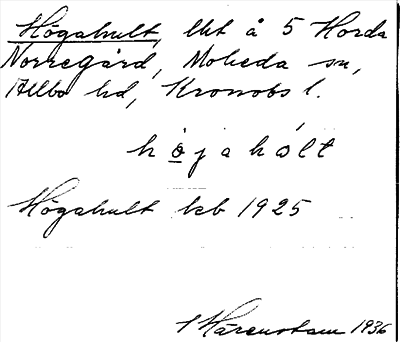 Högahult, lht å 5 Horda
Norregård, Moheda sn,
Allbo hd, Kronobs l.
h ö j a h ó l t
Högahult ksb 1925
1936